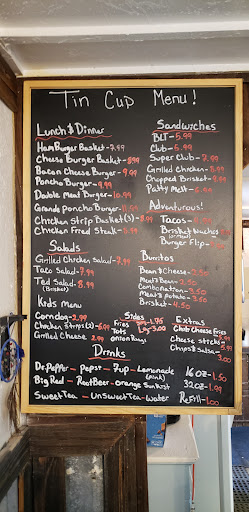 Tin Cup Menu!
Lunch & Dinner
HamBurger Basket - 7.99
Cheese Burger Basket - 8.99
Bacon Cheese Burger - 9.99
Poncho Burger - 9.99
Double Meat Burger - 10.99
Grande Poncho Burger - 11.99
Chicken Strip Basket(3) - 8.99
Chicken Fried Steak - 8.99
Salads
Grilled Chicken Salad - 7.99
Taco Salad - 7.99
Ted Salad - 8.99
(Brisket)
Kids Menu
Corndog - 2.99
Chicken Strips(2) - 6.99
Grilled Cheese 2.99
Sandwiches
BLT - 5.99
Club - 5.99
Super Club - 7.99
Grilled Chicken - 8.99
Chopped Brisket - 8.99
Patty Melt - 8.99
Adventurous!
Tacos
Brisket Nachos
Burger Flip - 
Burritos
Bean & Cheese - 2.50
Meat & Bean - 3.50
Combination - 3.50
Meat & Potato - 3.50
Brisket - 4.50
Sides
Fries
Tots
Onion Rings
Sm - 1.75
Lg - 3.00
Extras
Chili Cheese Fries
Cheese Sticks -
Chips & Salsa -
Drinks
Dr. Pepper - Pepsi - 7up - Lemonade
(pink)
Big Red - RootBeer - Orange Sunkist
SweetTea - UnsweetTea - Water
16 oz - 1.50
32 oz - 1.99
Refill - 1.00